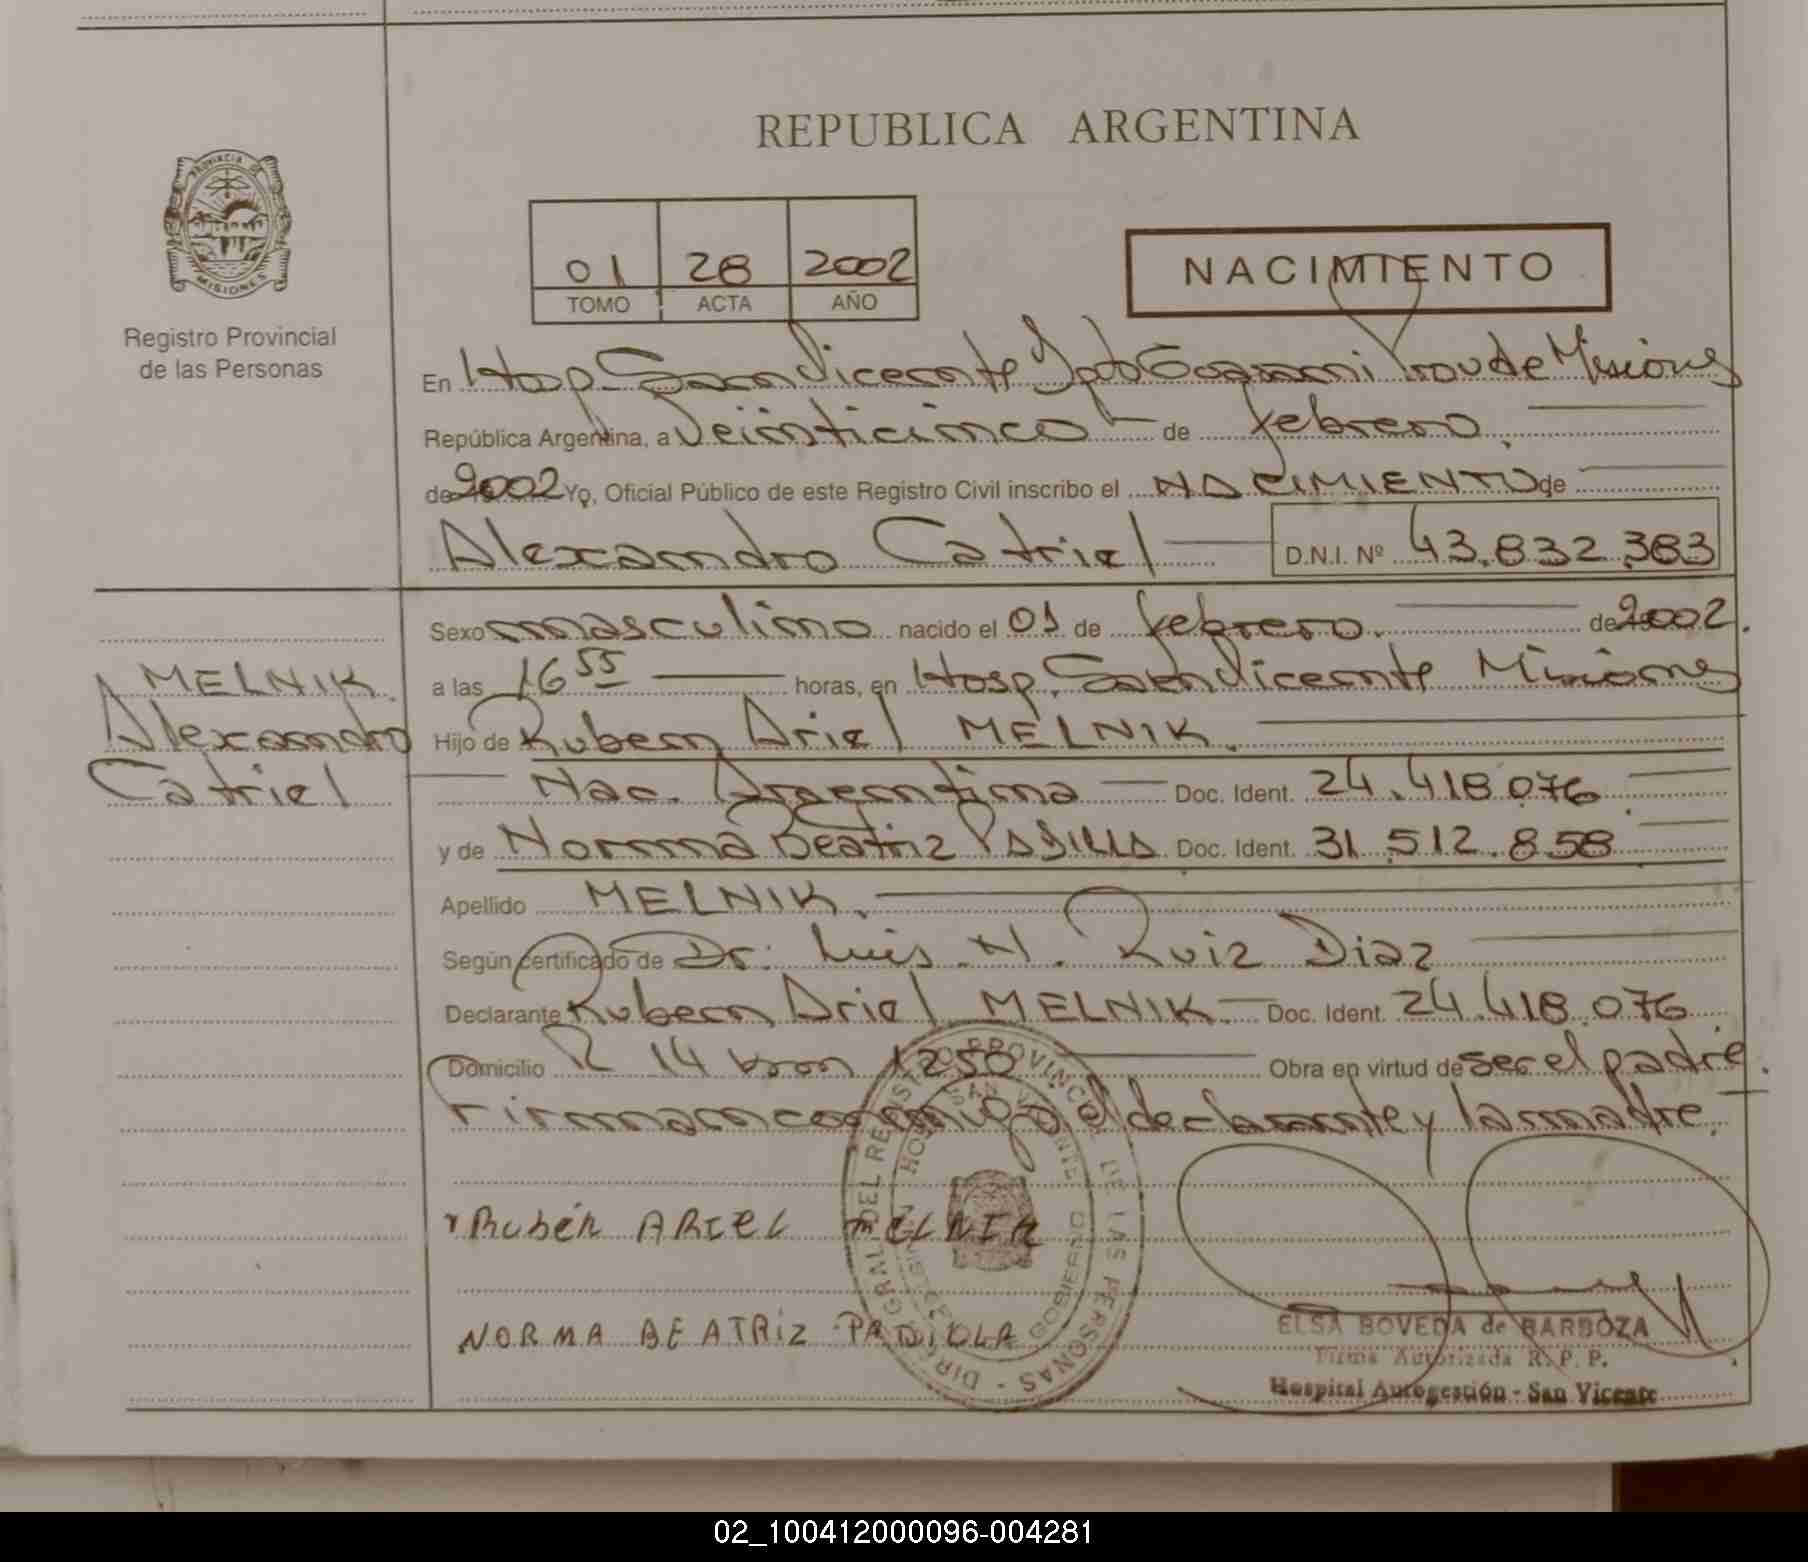 REPUBLICA ARGENTINA
PROVINCIA DE
MISIONES
Registro Provincial
de las Personas
01 28 2002
TOMO ACTA AÑO
NACIMIENTO
En Hosp. San Vicente Dpto Guarani Prov de Misiones
República Argentina, a Veinticinco de febrero.
de 2002 Yo, Oficial Público de este Registro Civil inscribo el NACIMIENTO de
Alexandro Catriel D.N.I. Nº 43.832.383
Sexo masculino nacido el 01 de febrero. de 2002.
MELNIK
Alexandro
Catriel
a las 16 55 horas, en Hosp. San Vicente Misiones
Hijo de Ruben Ariel MELNIK.
Nac. Argentina Doc. Ident. 24.418.076
y de Norma Beatriz PADILLA Doc. Ident. 31.512.858
Apellido MELNIK.
Según certificado de Dr. Luis N. Ruiz Diaz
Declarante Ruben Ariel MELNIK. Doc. Ident. 24.418.076
Domicilio R 14 km 1250 Obra en virtud de ser el padre.
Firman conmigo el declarante y la madre.
Rubén ARIEL MELNIK
NORMA BEATRIZ PADILLA
PROVINCIAL DE LAS PERSONAS - DIR GRAL DEL REGISTRO
HOSP SAN VICENTE
GOBIERNO
ELSA BOVEDA de BARBOZA
Firma Autorizada R. P. P.
Hospital Autogestión - San Vicente
02_100412000096-004281